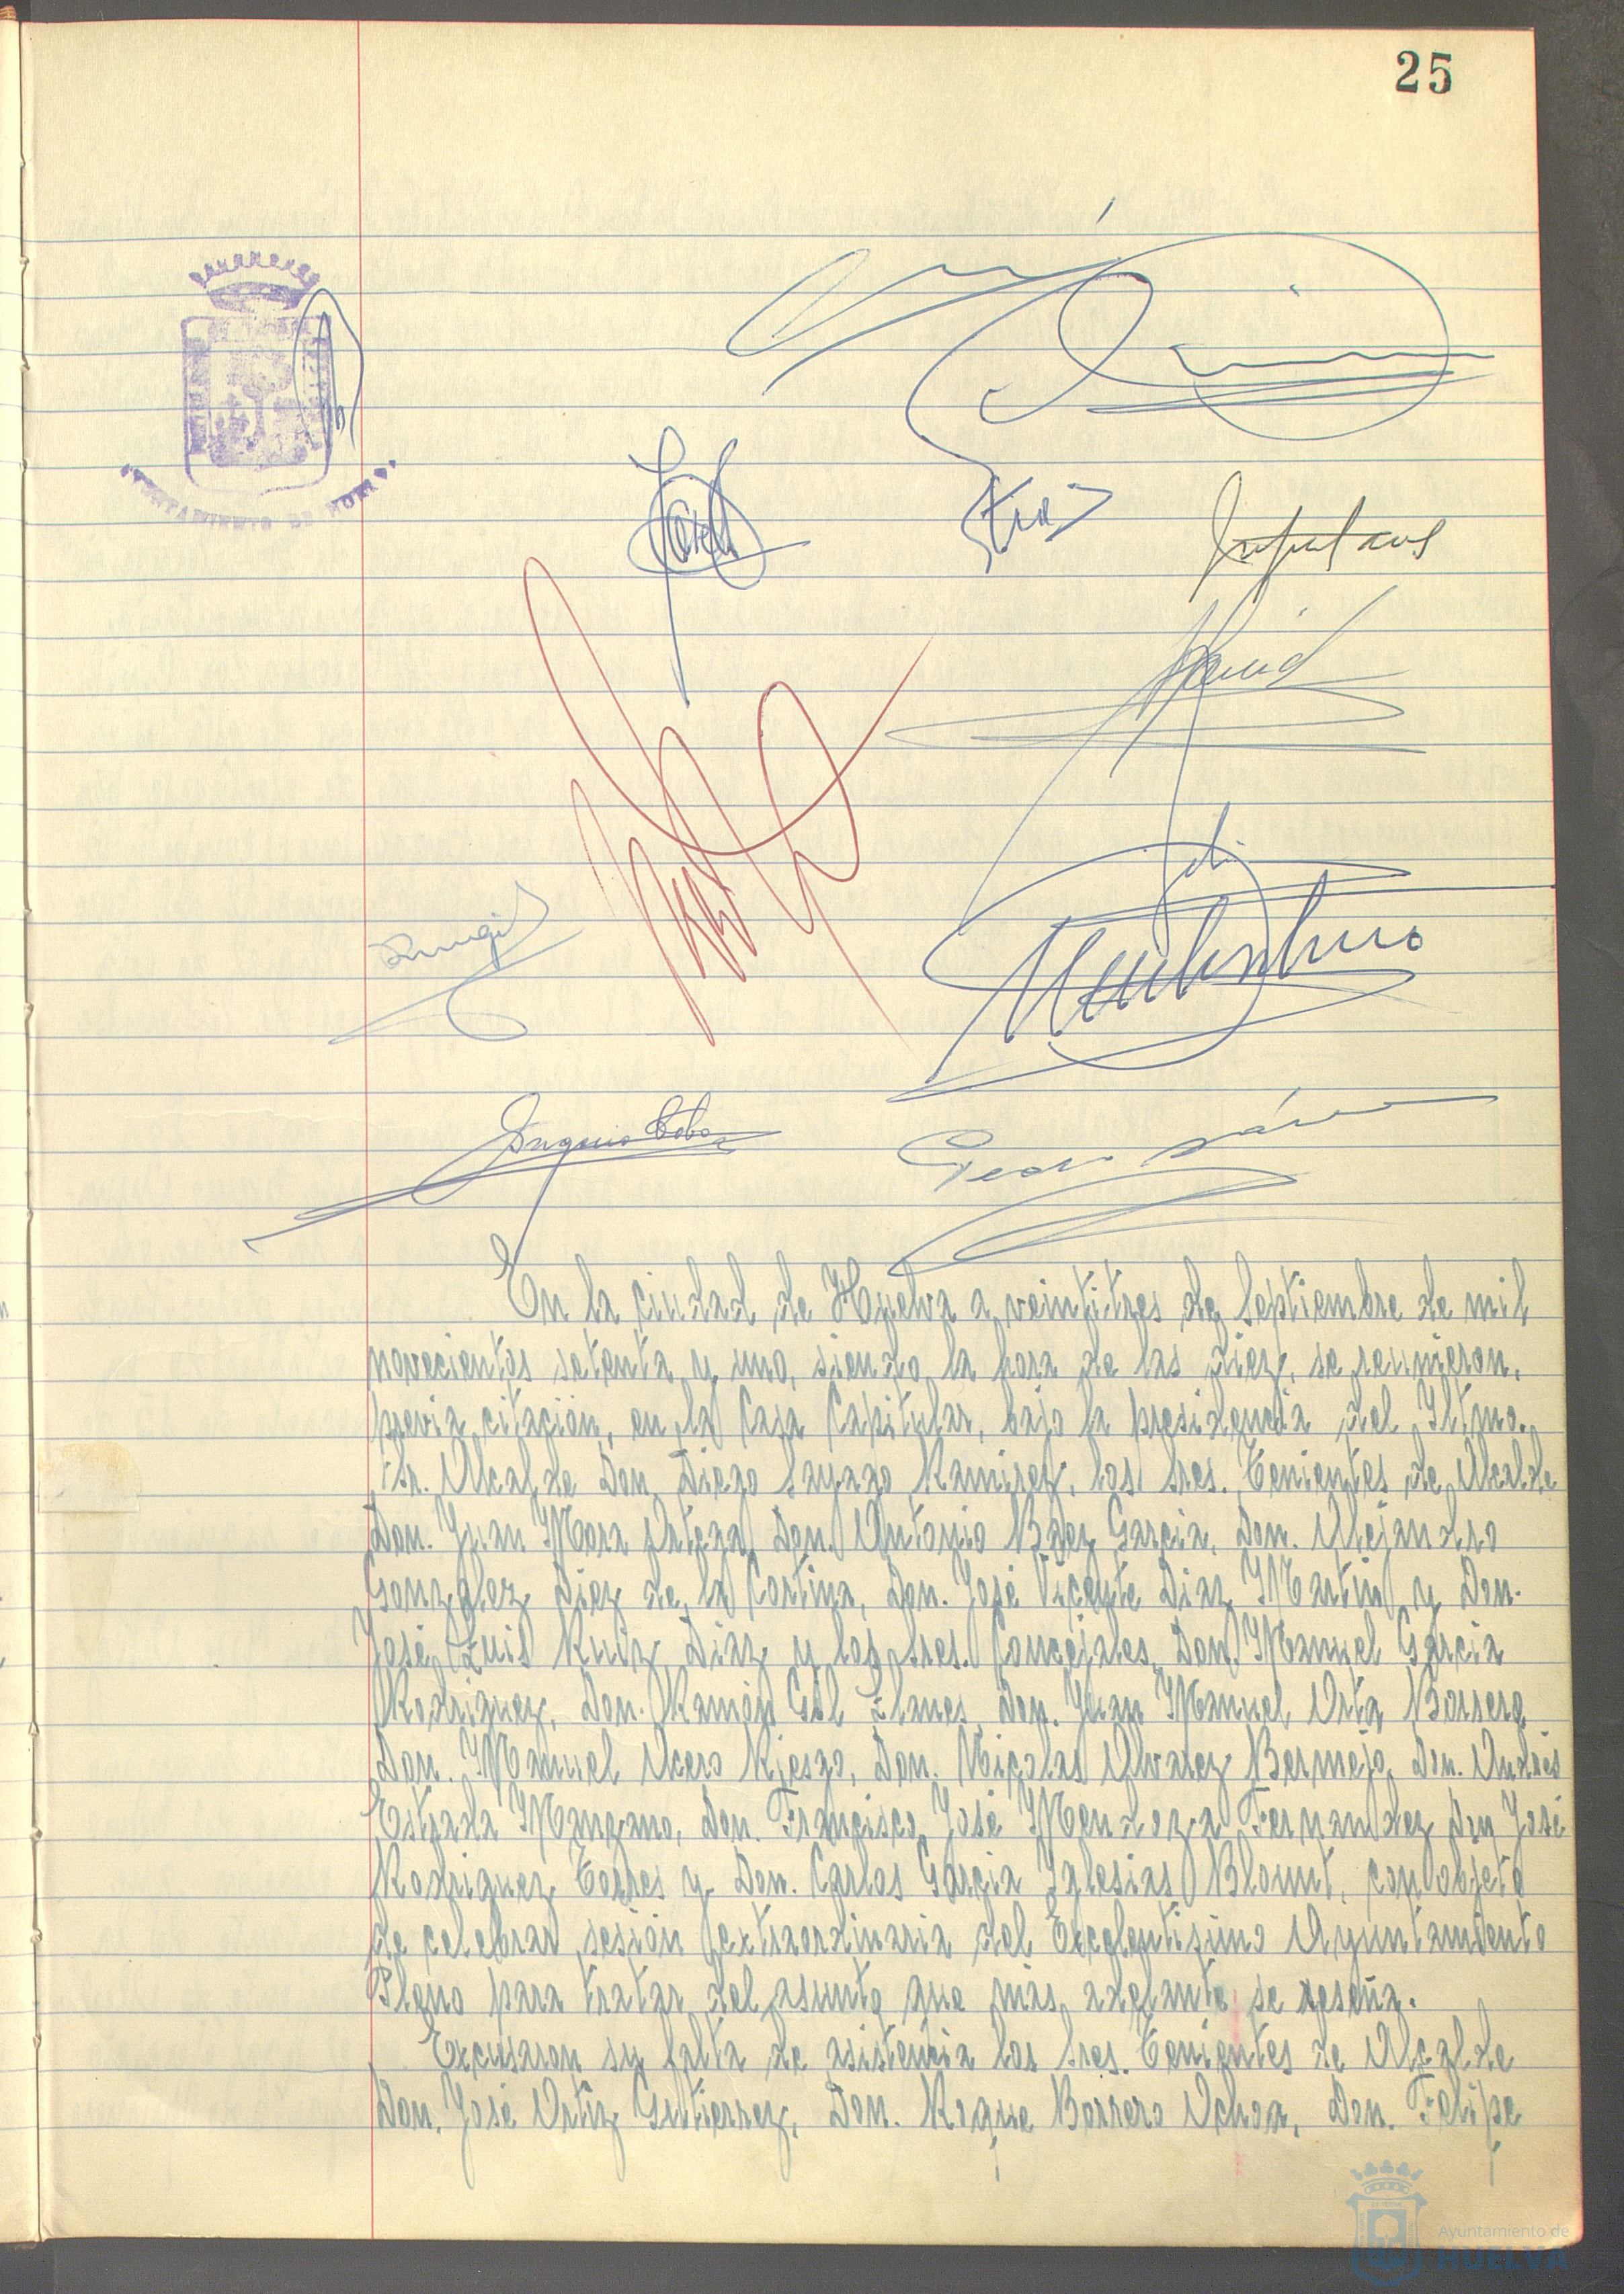 25
AYUNTAMIENTO DE HUELVA
En la ciudad de Huelva a veintitres de Septiembre de mil
novecientos setenta y uno, siendo la hora de las diez, se reunieron,
previa citación, en la Casa Capitular, bajo la presidencia del Iltmo.
Sr. Alcalde Don Diego Sayago Ramirez, los Sres. Tenientes de Alcalde
Don. Juan Mora Ortega, Don. Antonio Baez Garcia, Don. Alejandro
Gonzalez Diez de la Cortina, Don. José Vicente Diaz Martin y Don.
José Luis Ruiz Diaz y los Sres. Concejales, Don. Manuel Garcia
Rodriguez, Don. Ramón Gil Llanes, Don. Juan Manuel Orta Borrero
Don. Manuel Acero Riesgo, Don. Nicolas Alvarez Bermejo, Don. Andrés
Estrada Manzano, Don. Francisco José Mendoza Fernandez, Don José
Rodriguez Torres y Don. Carlos Garcia Iglesias Blount, con objeto
de celebrar sesión extraordinaria del Excelentisimo Ayuntamiento
Pleno para tratar del asunto que más adelante se reseña.
Excusaron su falta de asistencia los Sres. Tenientes de Alcalde
Don. José Ortiz Gutierrez, Don. Roque Borrero Ochoa, Don. Felipe
Ayuntamiento de
HUELVA